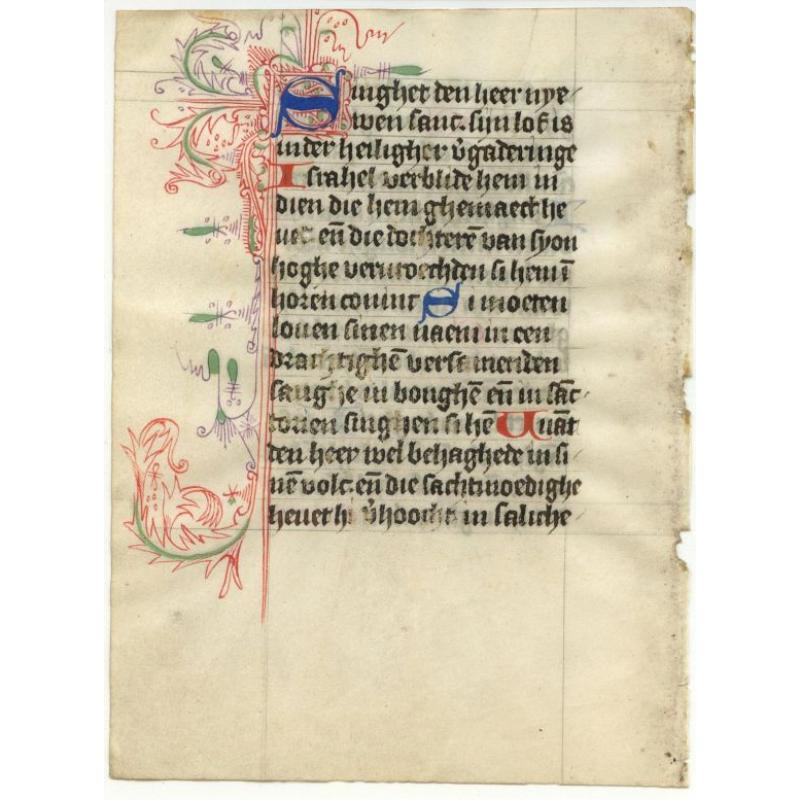 Singhet den heer nye-
wen sanc. sijn lof is
inder heiligher v̄gaderinge
Israhel verblide hem in
dien die hem ghemaect he
uet eñ die dochterē van syon
hoghe vervroechden si hem ī
horen coninc Si moeten
louen sinen naem in een
drachtighē versamenden
sanghe in bonghē eñ in sāc-
torien singhen si hē Want
den heer wel behaghede in si
nē volc. eñ die sachtmoedighe
heuet hi v̄hoocht in saliche-